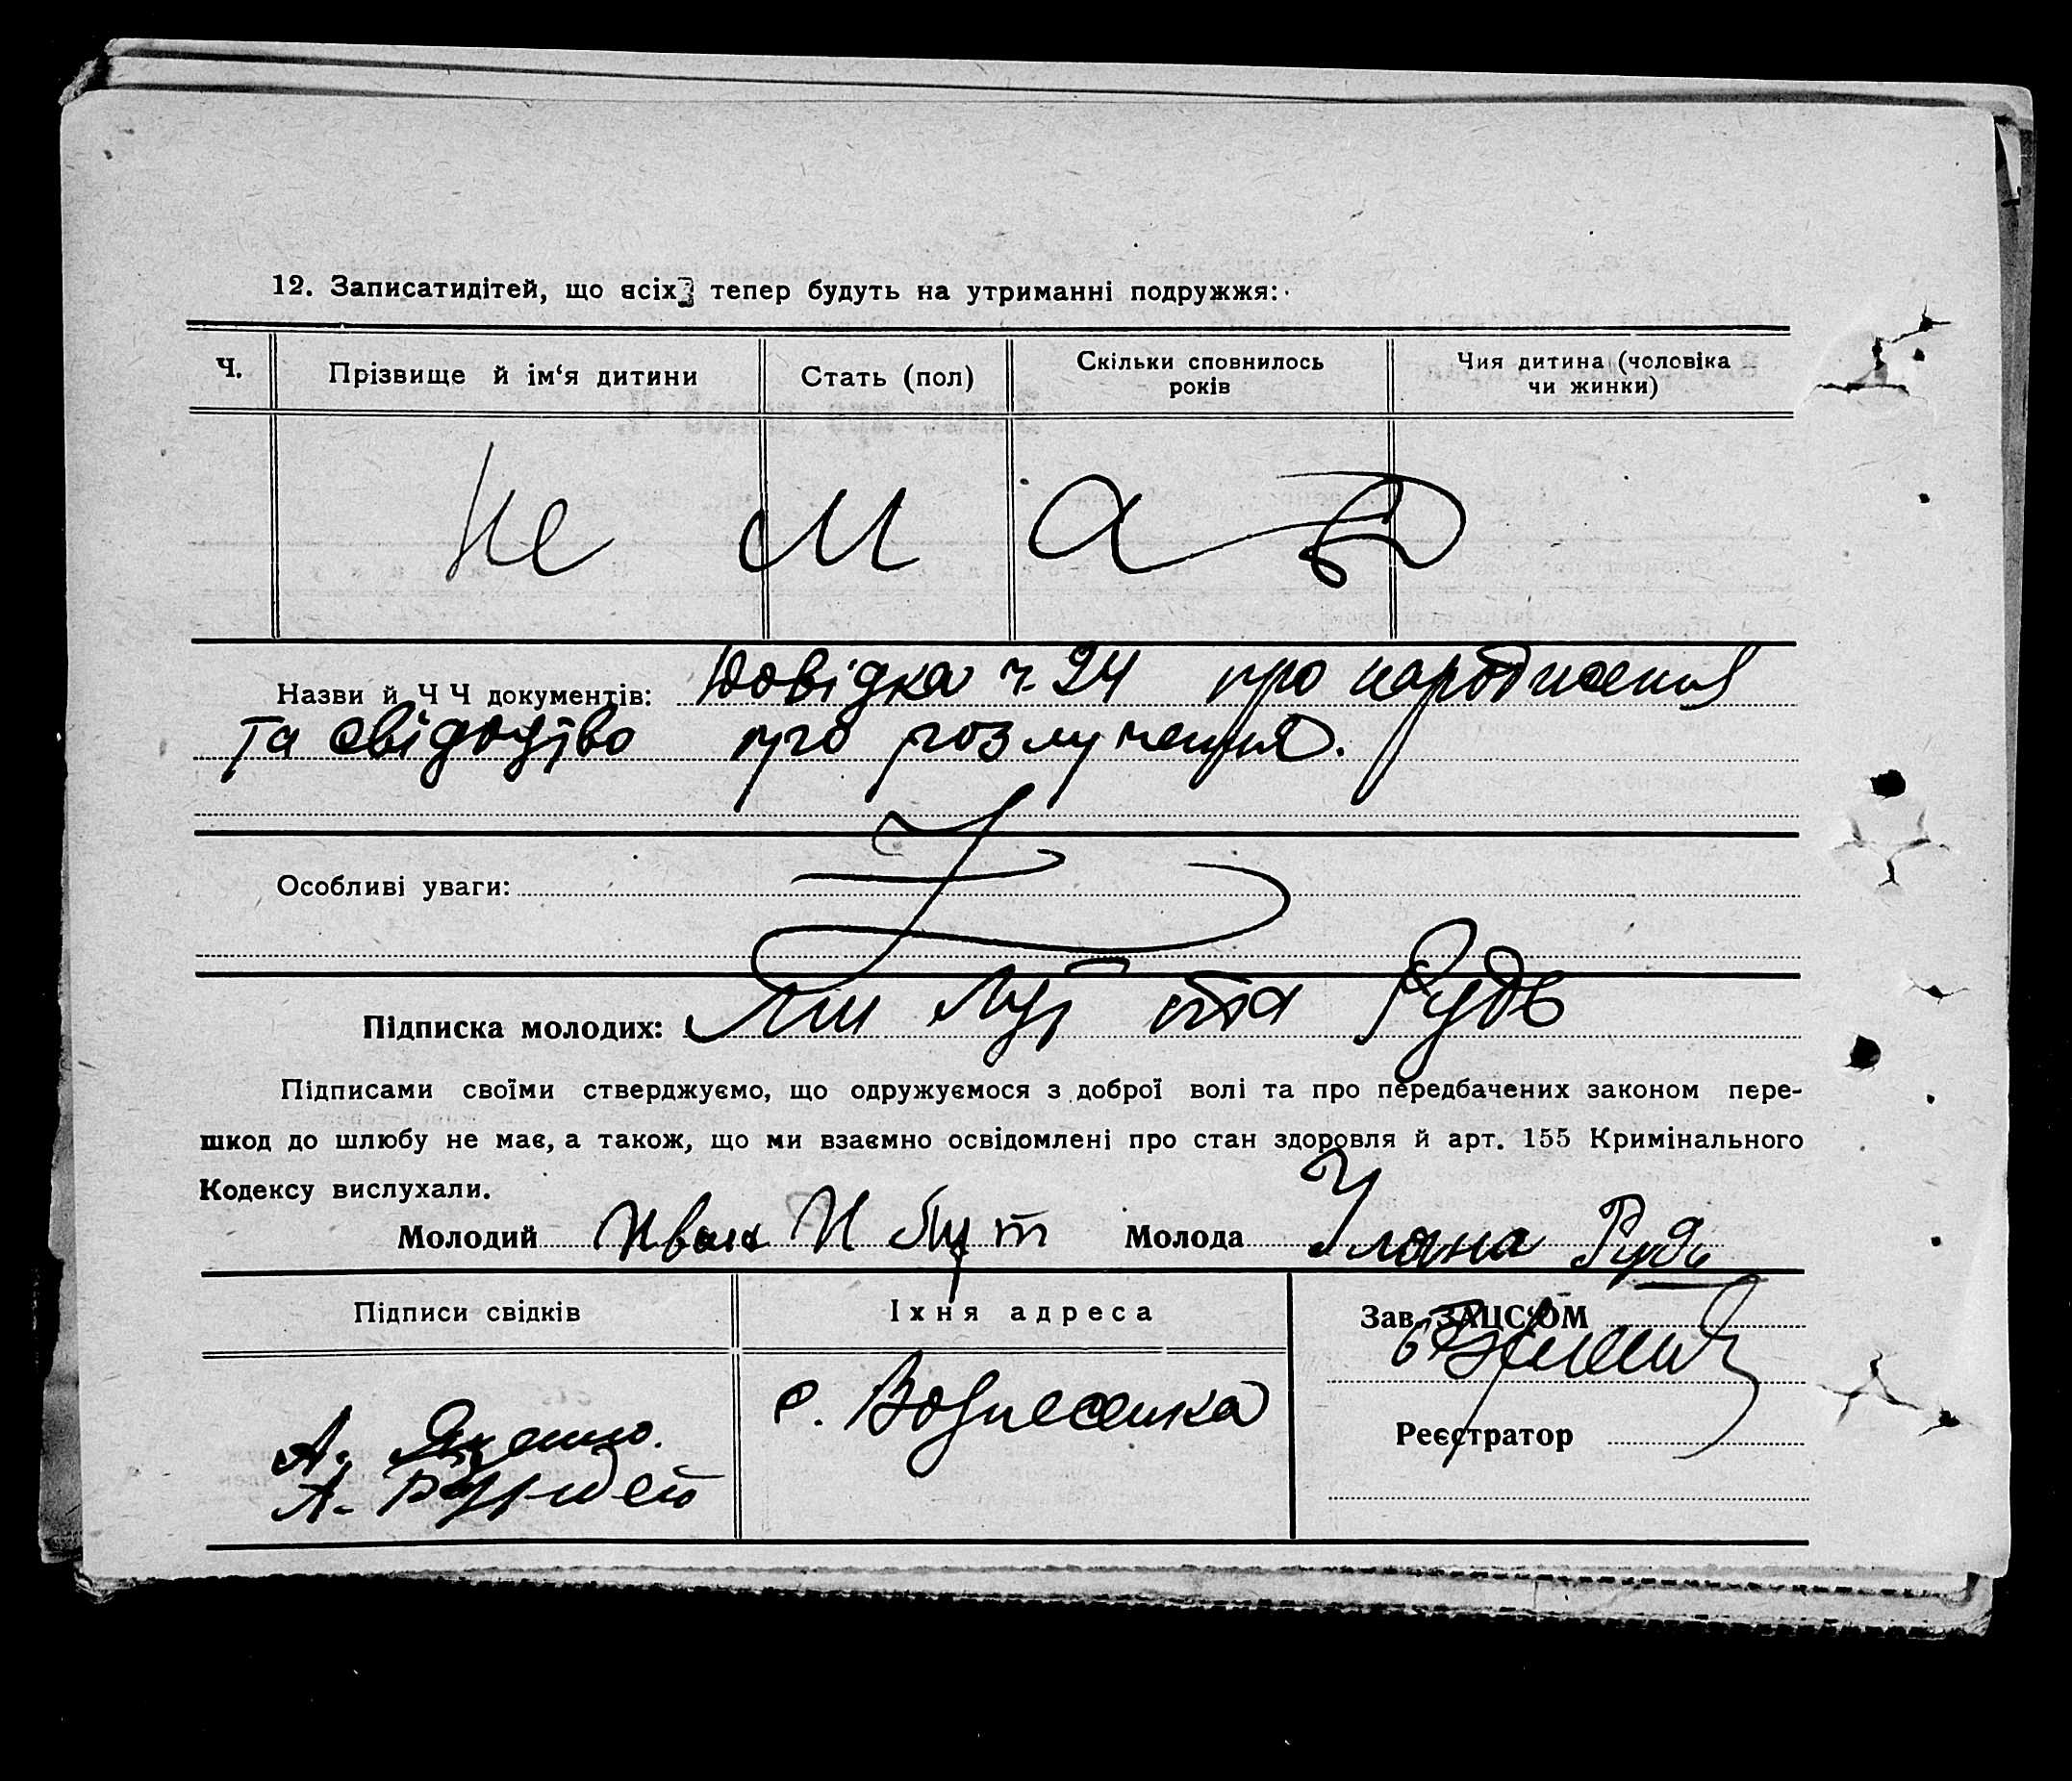 12. Записатидітей, що всіх тепер будуть на утриманні подружжя:
Ч. Прізвище й ім'я дитини Стать (пол) Скільки сповнилось років Чия дитина (чоловіка чи жинки)
не м а
Назви й Ч Ч документів: Довідка ч. 24 про народження
та свідодтво про розлучення.
Особливі уваги:
Підписка молодих: Ми та Рудь
Підписами своїми стверджуємо, що одружуємося з доброї волі та про передбачених законом пере-
шкод до шлюбу не має, а також, що ми взаємно освідомлені про стан здоровля й арт. 155 Кримінального
Кодексу вислухали.
Молодий Иван И Молода Уляна Рудь
Підписи свідків Їхня адреса Зав. ЗАЦС'ОМ
с. Вознесенка
А. Яценко.
Реєстратор
А.